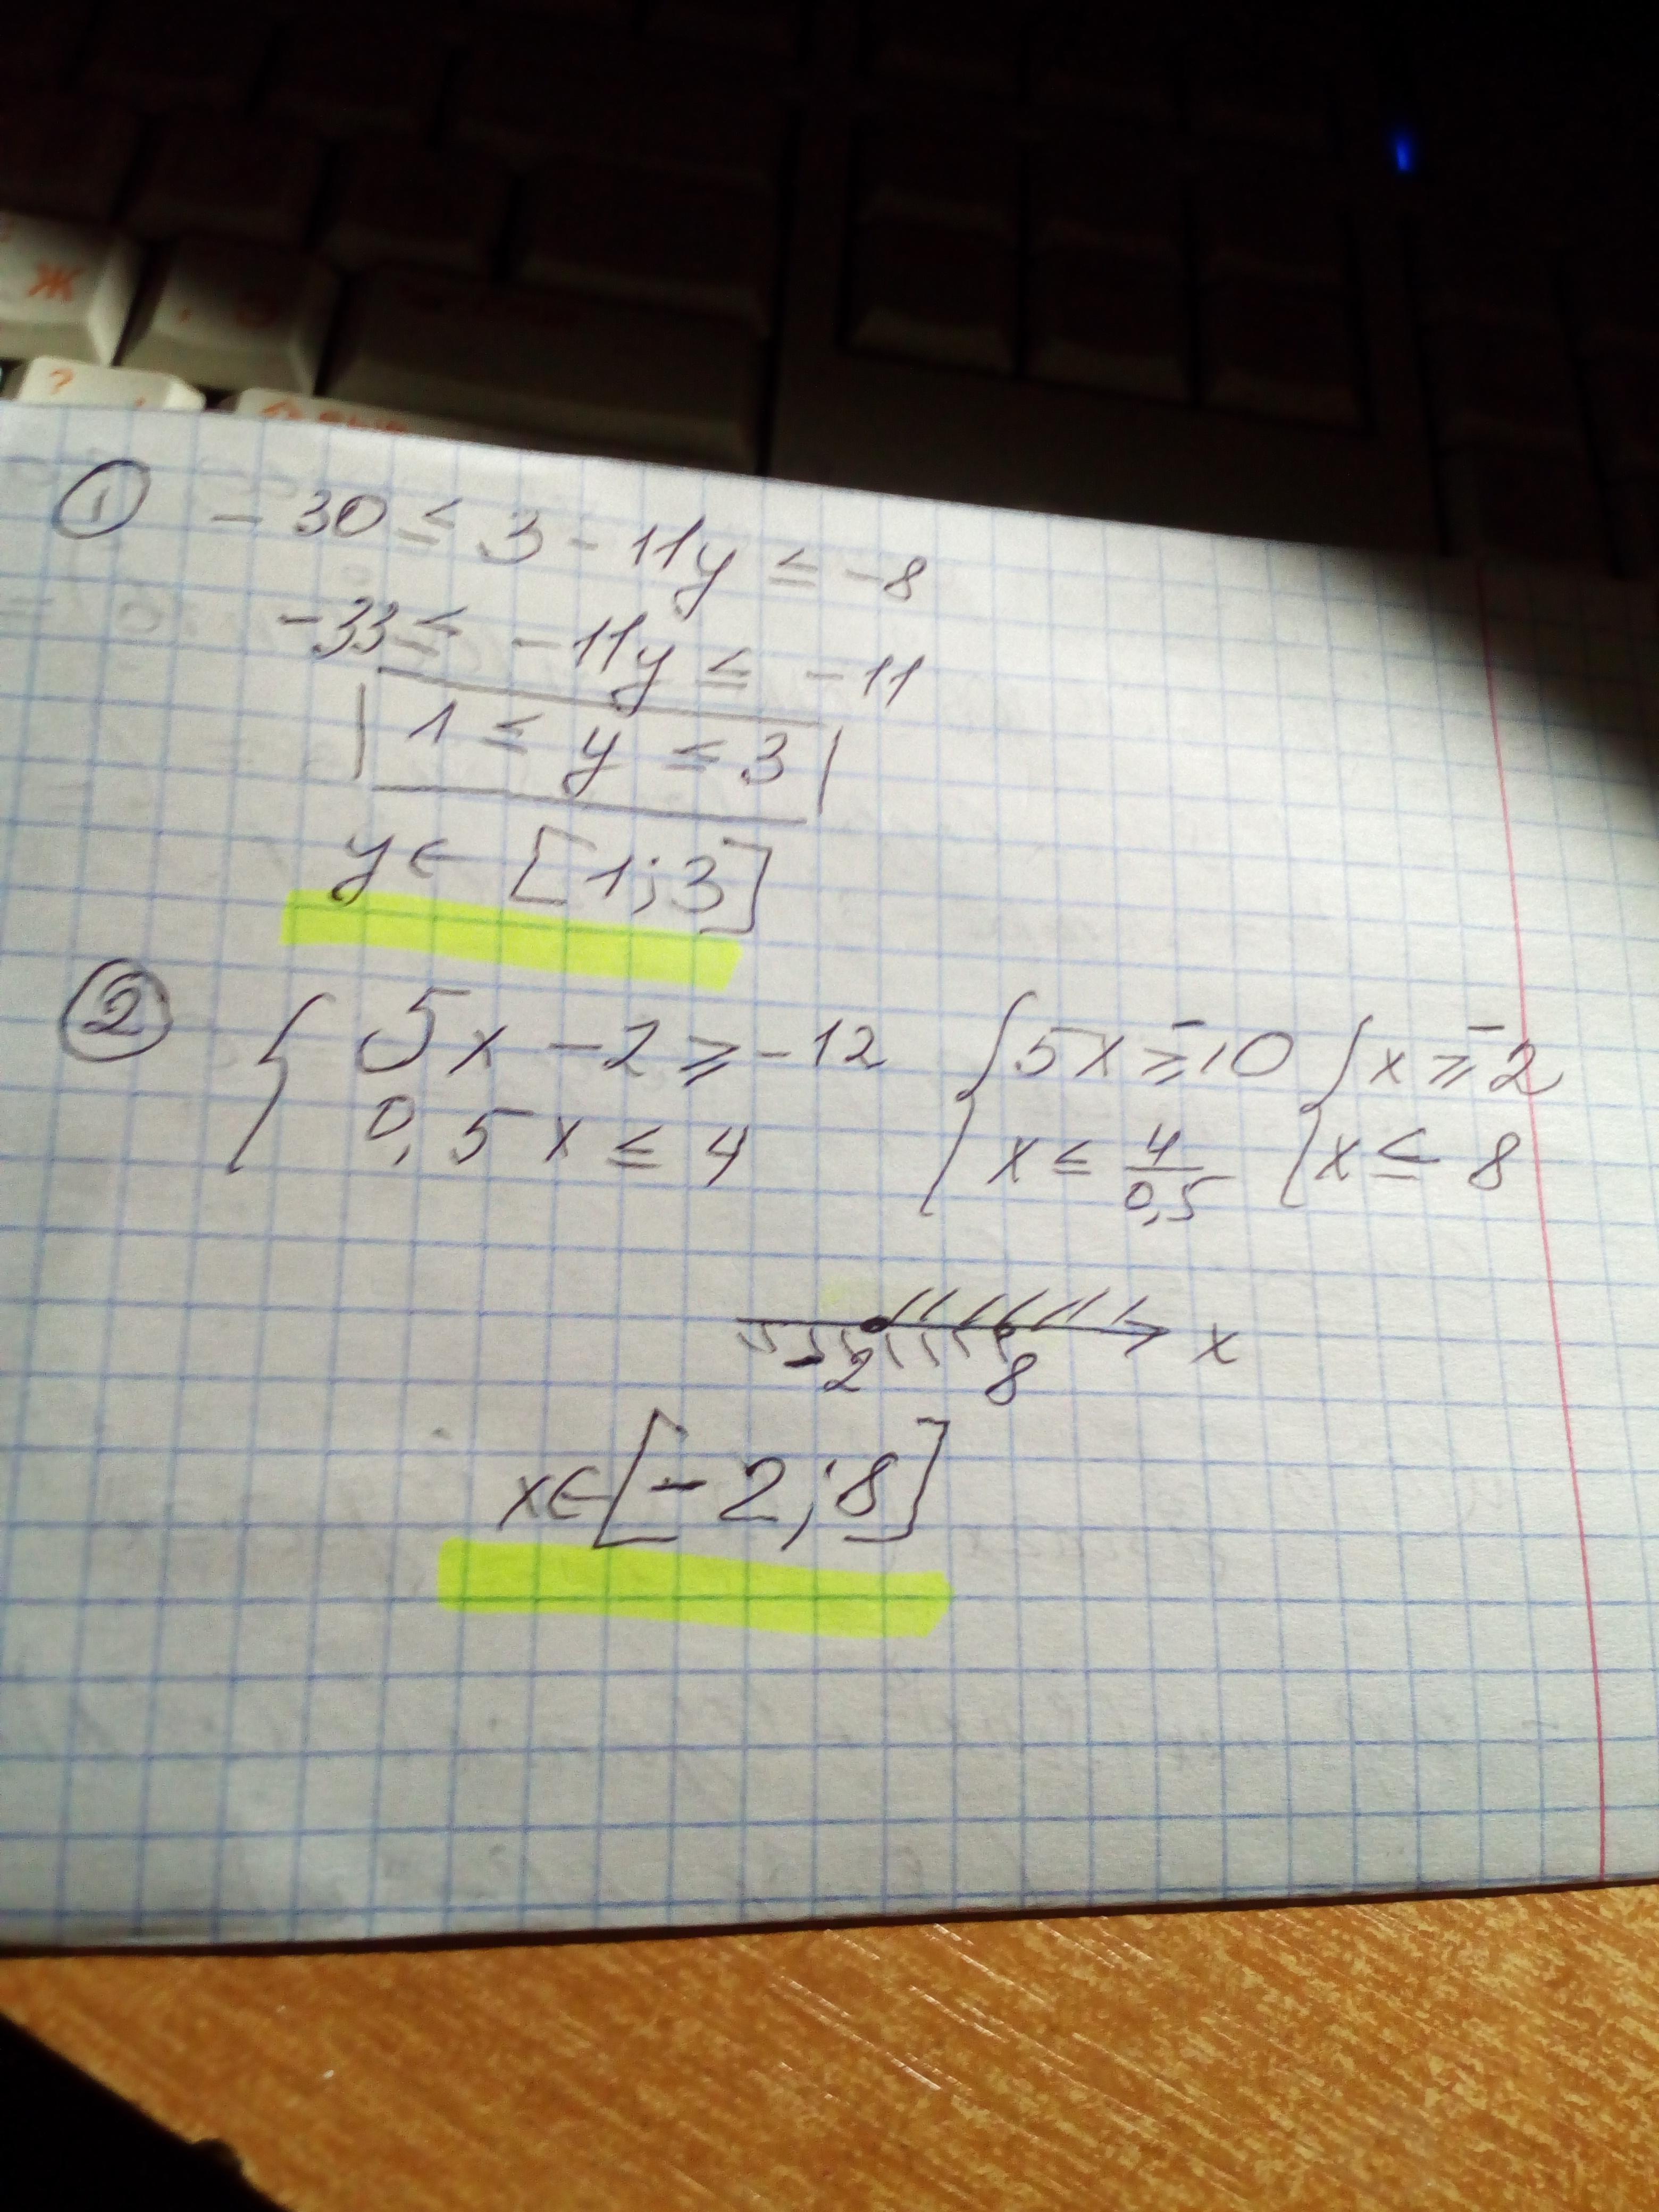 Ж
?
① -30 ≤ 3 - 11y ≤ -8
-33 ≤ -11y ≤ -11
1 ≤ y ≤ 3
y ∈ [1; 3]
② { 5x - 2 ≥ -12 { 5x ≥ -10 { x ≥ -2
0,5x ≤ 4 x ≤ 4/0,5 x ≤ 8
-2 8 x
x ∈ [-2; 8]